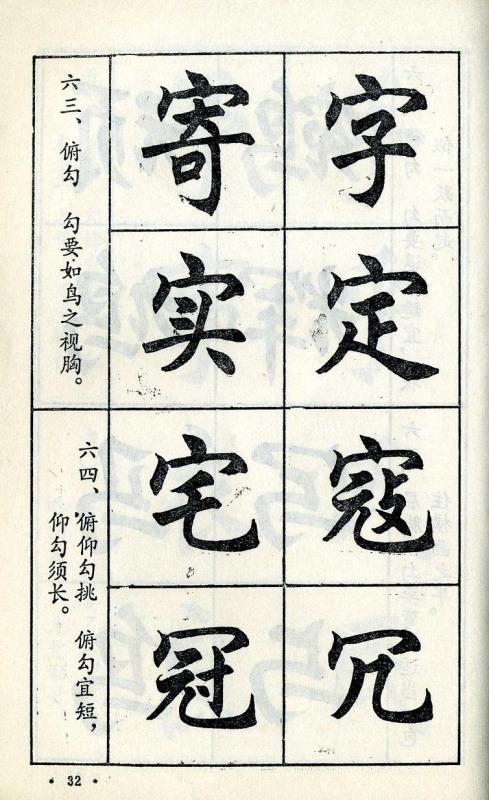 字定寇冗
寄实宅冠
六三、俯勾 勾要如鸟之视胸。
六四、俯仰勾挑 俯勾宜短，
仰勾须长。
· 32 ·